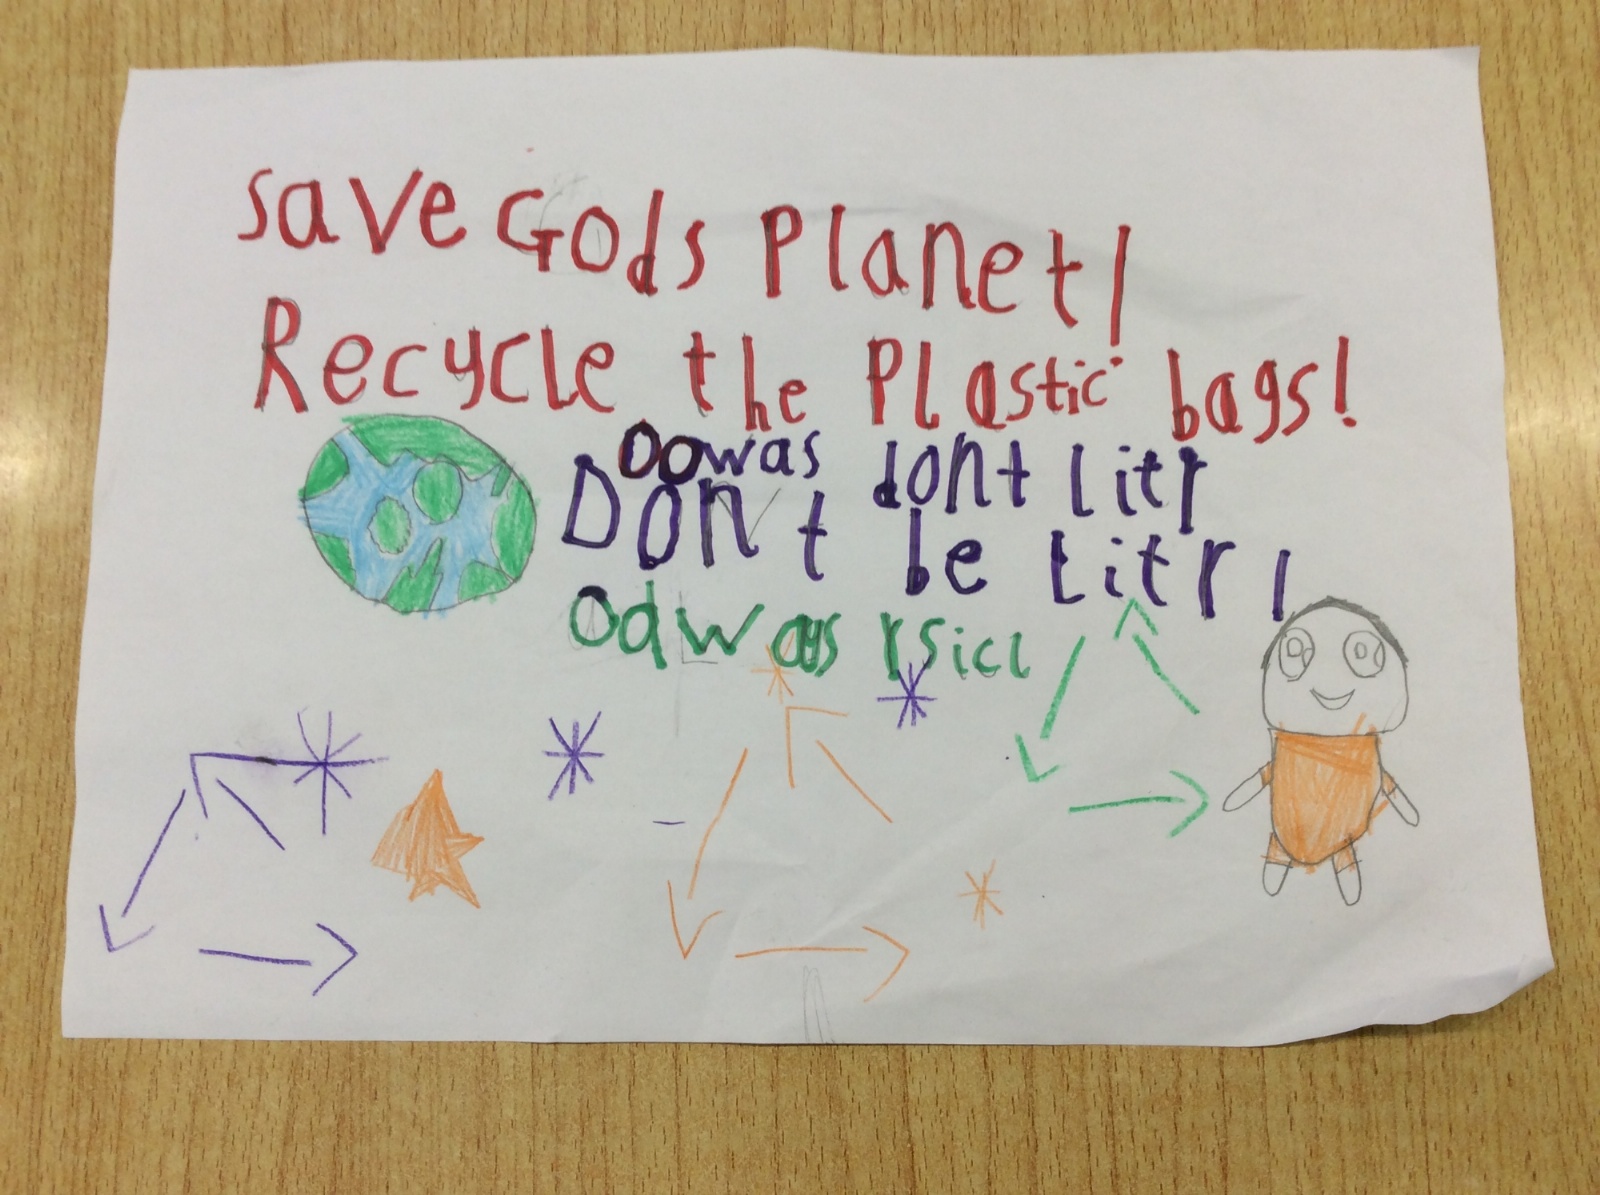 save Gods Planet!
Recycle the Plastic bags!
oowas dont litr
Don't be Litr!
Odways rsicl